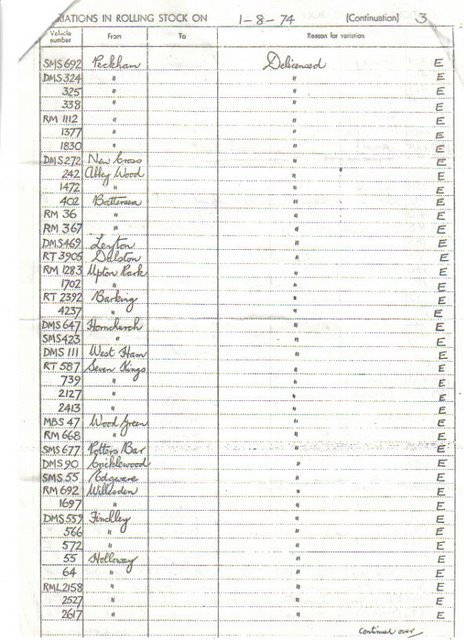 VARIATIONS IN ROLLING STOCK ON 1-8-74 (Continuation) 3
Vehicle number From To Reason for variation
SMS 692 Peckham Delicensed E
DMS 324 " " E
325 " " E
338 " " E
RM 1112 " " E
1377 " " E
1830 " " E
DMS 272 New Cross " E
242 Abbey Wood " E
1472 " " E
402 Battersea " E
RM 36 " " E
RM 367 " " E
DMS 469 Leyton " E
RT 3905 Dalston " E
RM 1283 Upton Park " E
1702 " " E
RT 2392 Barking " E
4237 " " E
DMS 647 Hornchurch " E
SMS 423 " " E
DMS 111 West Ham " E
RT 587 Seven Kings " E
739 " " E
2127 " " E
2413 " " E
MBS 47 Wood Green " E
RM 668 " " E
SMS 677 Potters Bar " E
DMS 90 Cricklewood " E
SMS 55 Edgware " E
RM 692 Willesden " E
1697 " " E
DMS 559 Finchley " E
566 " " E
572 " " E
55 Holloway " E
64 " " E
RML 2158 " " E
2527 " " E
2617 " " E
Continued over